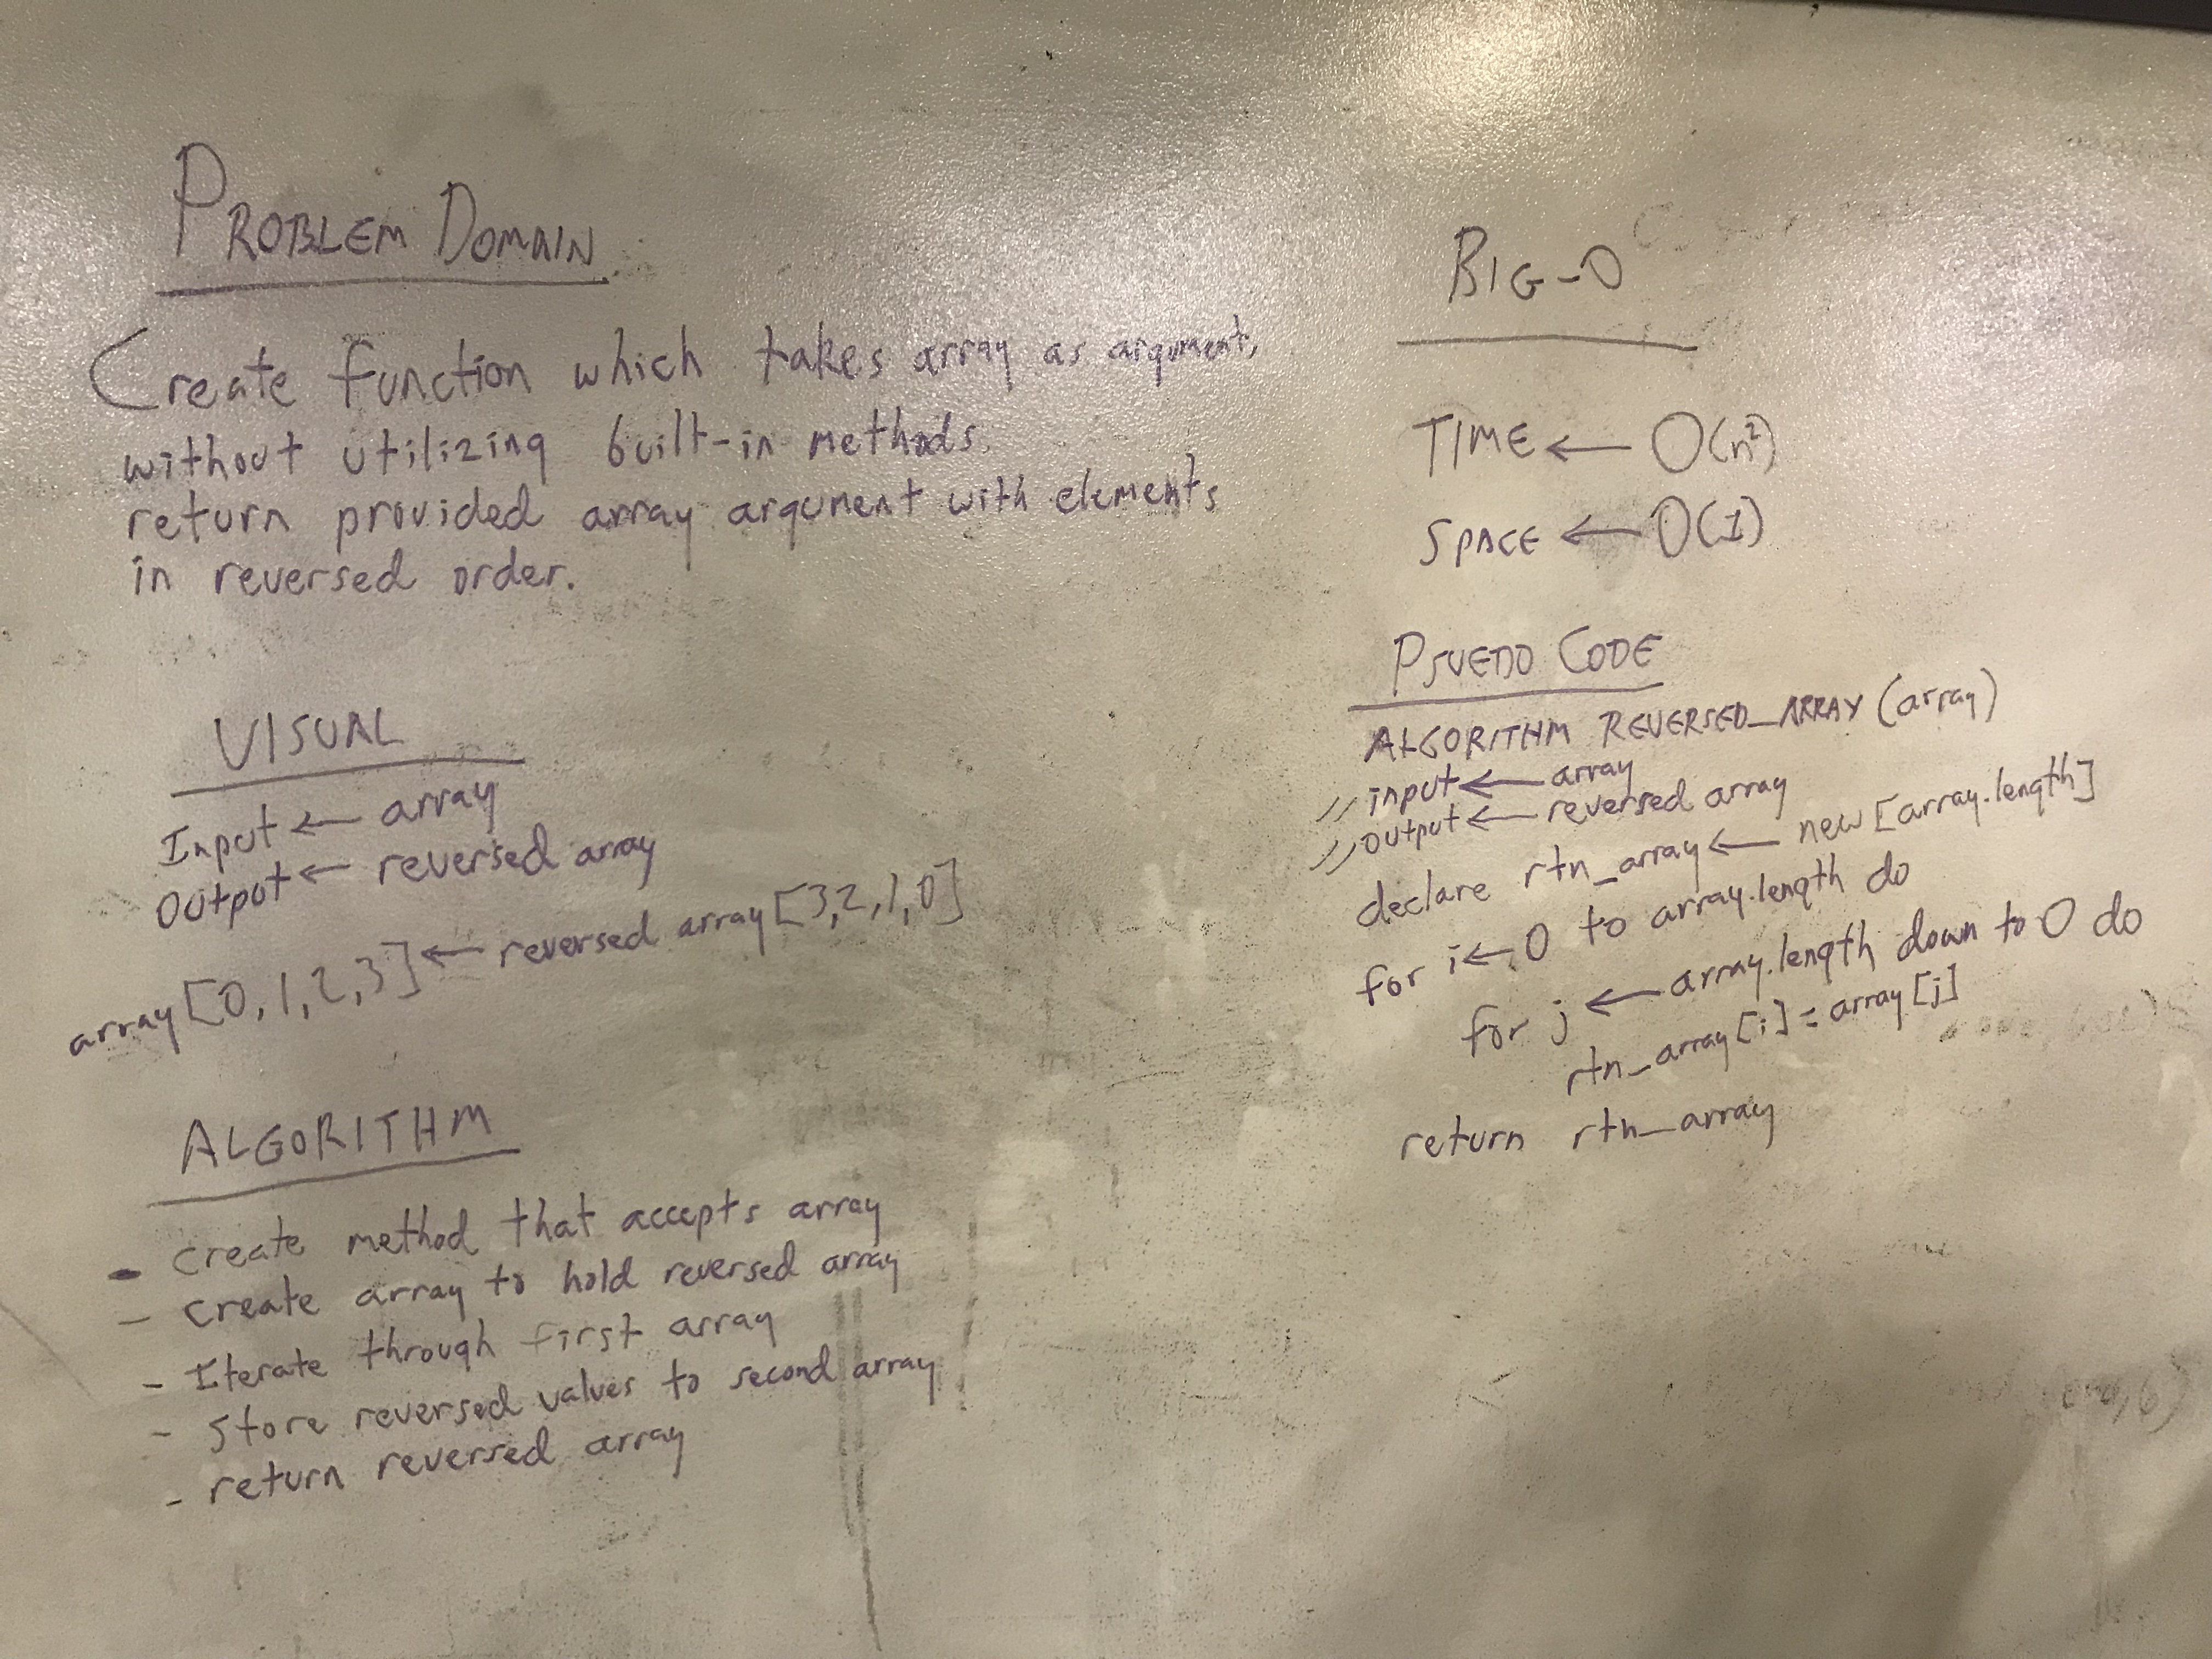 PROBLEM DOMAIN
Create function which takes array as argument,
without utilizing built-in methods.
return provided array argument with elements
in reversed order.
VISUAL
Input ← array
Output ← reversed array
array [0,1,2,3] ← reversed array [3,2,1,0]
ALGORITHM
- create method that accepts array
- create array to hold reversed array
- Iterate through first array
- Store reversed values to second array
- return reversed array
BIG-O
TIME ← O(n²)
SPACE ← O(1)
PSUEDO CODE
ALGORITHM REVERSED_ARRAY (array)
// input ← array
// output ← reversed array
declare rtn_array ← new [array.length]
for i ← 0 to array.length do
for j ← array.length down to 0 do
rtn_array [i] = array [j]
return rtn_array